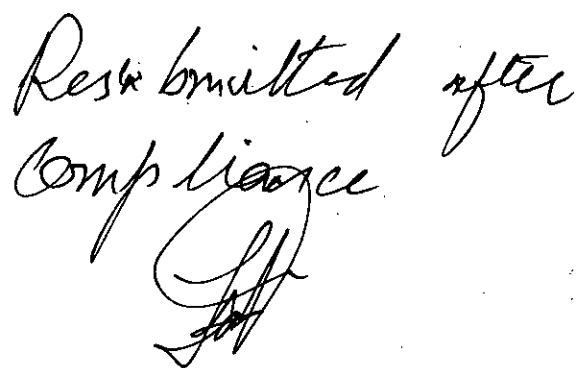 Resubmitted after
compliance